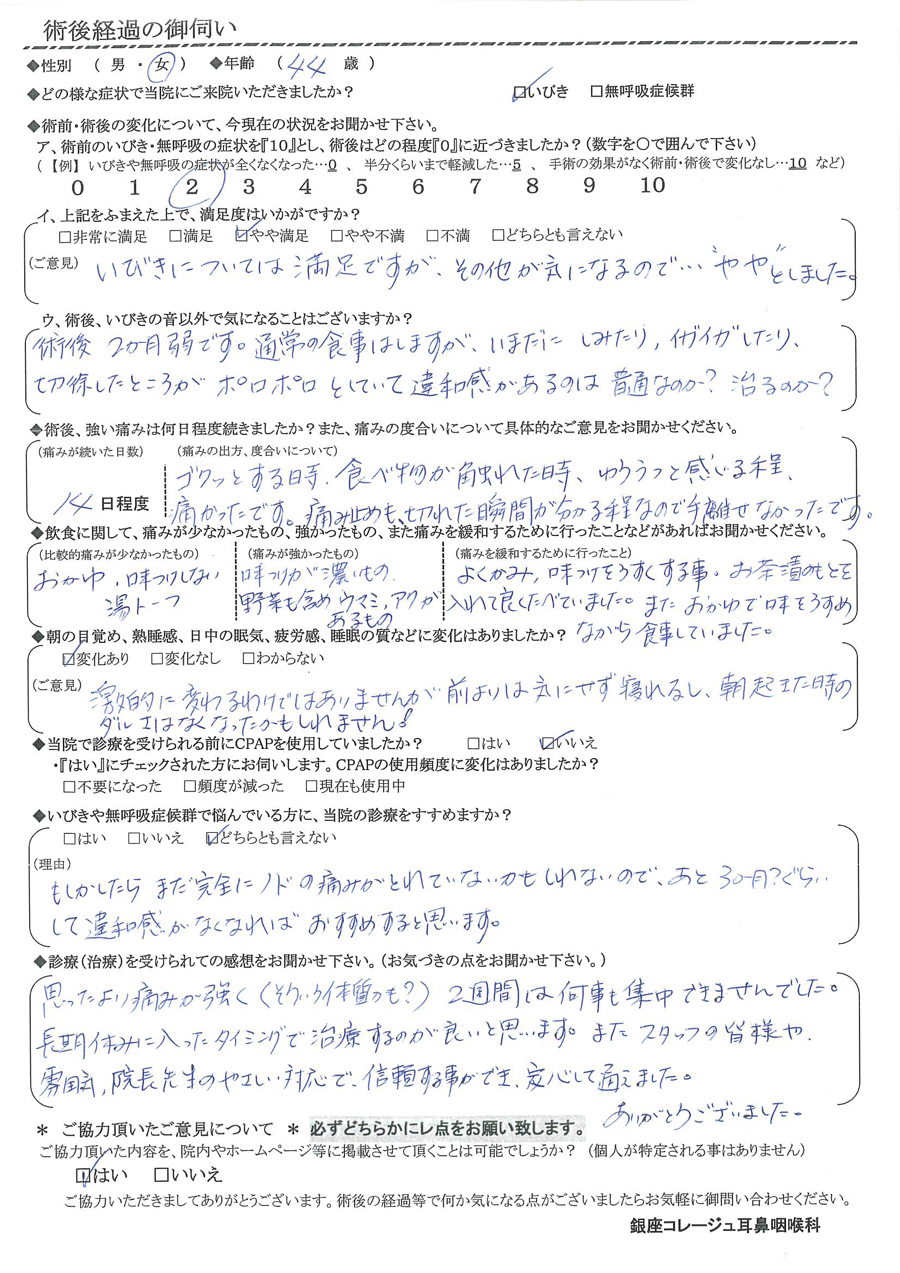 術後経過の御伺い
◆性別 ( 男 ・ 女 ) ◆年齢 ( 44 歳 )
◆どの様な症状で当院にご来院いただきましたか? ☑いびき □無呼吸症候群
◆術前・術後の変化について、今現在の状況をお聞かせ下さい。
ア、術前のいびき・無呼吸の症状を『10』とし、術後はどの程度『0』に近づきましたか?(数字を○で囲んで下さい)
(【例】いびきや無呼吸の症状が全くなくなった…0 、 半分くらいまで軽減した…5 、 手術の効果がなく術前・術後で変化なし…10 など)
0 1 2 3 4 5 6 7 8 9 10
イ、上記をふまえた上で、満足度はいかがですか?
□非常に満足 □満足 ☑やや満足 □やや不満 □不満 □どちらとも言えない
(ご意見) いびきについては満足ですが、その他が気になるので… "やや"としました。
ウ、術後、いびきの音以外で気になることはございますか?
術後 2か月弱です。通常の食事はしますが、いまだに しみたり, イガイガしたり、
切除したところが ポロポロ としていて 違和感があるのは 普通なのか? 治るのか?
◆術後、強い痛みは何日程度続きましたか?また、痛みの度合いについて具体的なご意見をお聞かせください。
(痛みが続いた日数) (痛みの出方、度合いについて)
ゴクッとする時、食べ物が触れた時、ゆううつと感じる程、
14 日程度 痛かったです。痛み止めも、切れた瞬間が分かる程なので手離せなかったです。
◆飲食に関して、痛みが少なかったもの、強かったもの、また痛みを緩和するために行ったことなどがあればお聞かせください。
(比較的痛みが少なかったもの) (痛みが強かったもの) (痛みを緩和するために行ったこと)
おかゆ, 味つけしない 味つけが濃いもの よくかみ, 味つけをうすくする事。お茶漬のもとを
湯トーフ 野菜も含め ウマミ, アクが 入れて良くたべていました。また おかゆで味をうすめ
あるもの ながら 食事していました。
◆朝の目覚め、熟睡感、日中の眠気、疲労感、睡眠の質などに変化はありましたか?
☑変化あり □変化なし □わからない
(ご意見) 激的に変わるわけではありませんが 前よりは気にせず寝れるし、朝起きた時の
ダルさはなくなったかもしれません!
◆当院で診療を受けられる前にCPAPを使用していましたか? □はい ☑いいえ
・『はい』にチェックされた方にお伺いします。CPAPの使用頻度に変化はありましたか?
□不要になった □頻度が減った □現在も使用中
◆いびきや無呼吸症候群で悩んでいる方に、当院の診療をすすめますか?
□はい □いいえ ☑どちらとも言えない
(理由)
もしかしたら まだ完全にノドの痛みがとれていないかもしれないので、あと 3か月?ぐらい
して違和感がなくなれば おすすめすると思います。
◆診療(治療)を受けられての感想をお聞かせ下さい。(お気づきの点をお聞かせ下さい。)
思ったより痛みが強く (そういう体質かも?) 2週間は何事も集中できませんでした。
長期休みに入ったタイミングで治療するのが良いと思います。また スタッフの皆様や、
雰囲気, 院長先生のやさしい対応で、信頼する事ができ、安心して通えました。
ありがとうございました。
* ご協力頂いたご意見について * 必ずどちらかにレ点をお願い致します。
ご協力頂いた内容を、院内やホームページ等に掲載させて頂くことは可能でしょうか? (個人が特定される事はありません)
☑はい □いいえ
ご協力いただきましてありがとうございます。術後の経過等で何か気になる点がございましたらお気軽に御問い合わせください。
銀座コレージュ耳鼻咽喉科